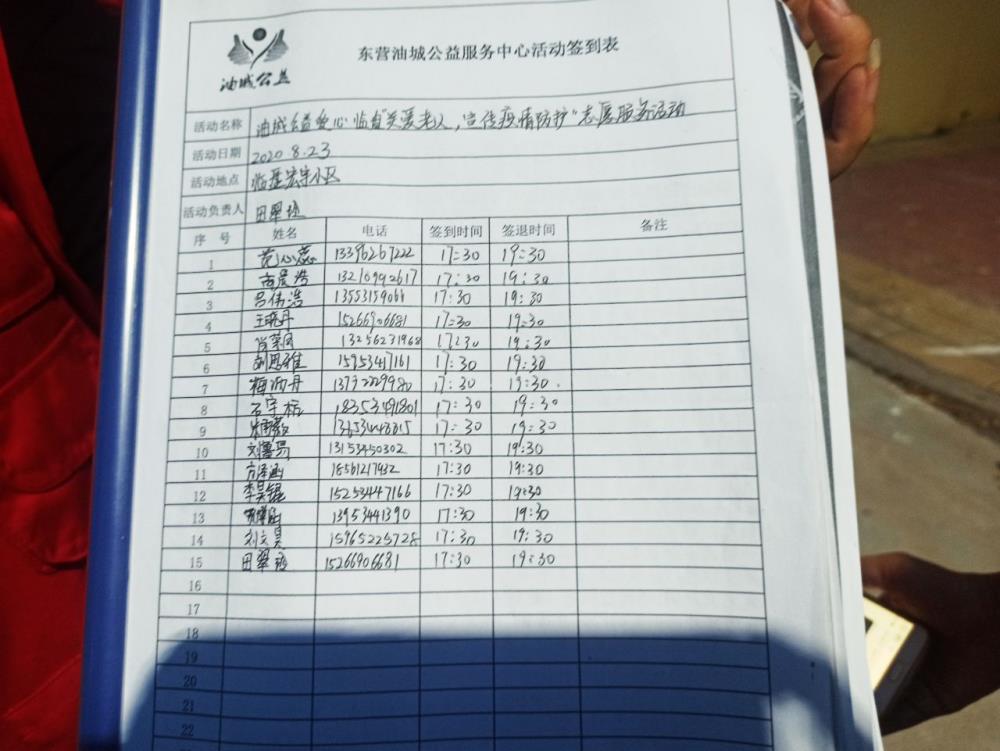 油城公益
东营油城公益服务中心活动签到表
活动名称 油城公益爱心临盘"关爱老人,宣传疫情防护"志愿服务活动
活动日期 2020 8.23
活动地点 临盘宏宇小区
活动负责人 田翠
序 号 姓名 电话 签到时间 签退时间 备注
1 范心蕊 13396267222 17:30 19:30
2 浩 17:30 19:30
3 吕伟浩 17:30 19:30
4 王晓丹 15266906681 17:30 19:30
5 肖荣凤 13256231968 17:30 19:30
6 刘思雅 15953417161 17:30 19:30
7 梅 丹 17:30 19:30
8 石宇栋 18353491801 17:30 19:30
9 17:30 19:30
10 刘鲁易 13153450302 17:30 19:30
11 方泽涵 18561217932 17:30 19:30
12 李昊锟 15253447166 17:30 19:30
13 13953441390 17:30 19:30
14 刘文昊 15965225728 17:30 19:30
15 田翠 15266906681 17:30 19:30
16
17
18
19
20
21
22